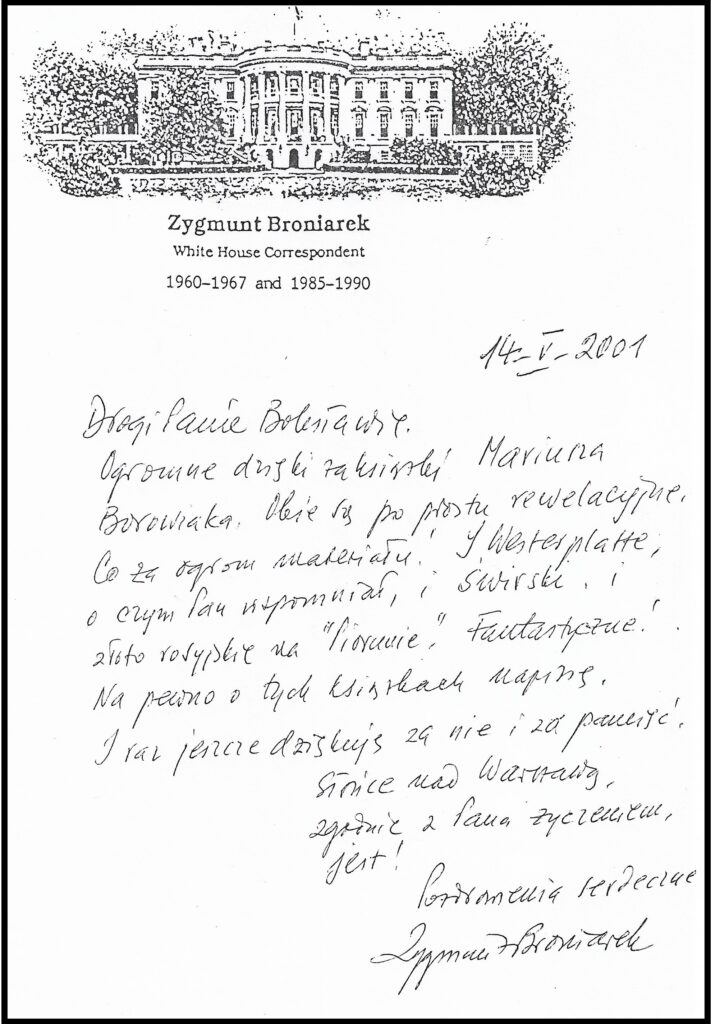 Zygmunt Broniarek
White House Correspondent
1960–1967 and 1985–1990
14-V-2001
Drogi Panie Bolesławie.
Ogromne dzięki za książki Mariusza
Borowiaka. Obie są po prostu rewelacyjne.
Co za ogrom materiału! I Westerplatte,
o czym Pan wspomniał, i Świrski. i
złoto rosyjskie na "Piorunie". Fantastyczne!
Na pewno o tych książkach napiszę.
I raz jeszcze dziękuję za nie i za pamięć.
Słońce nad Warszawą,
zgodnie z Pana życzeniem,
jest!
Pozdrowienia serdeczne
Zygmunt Broniarek